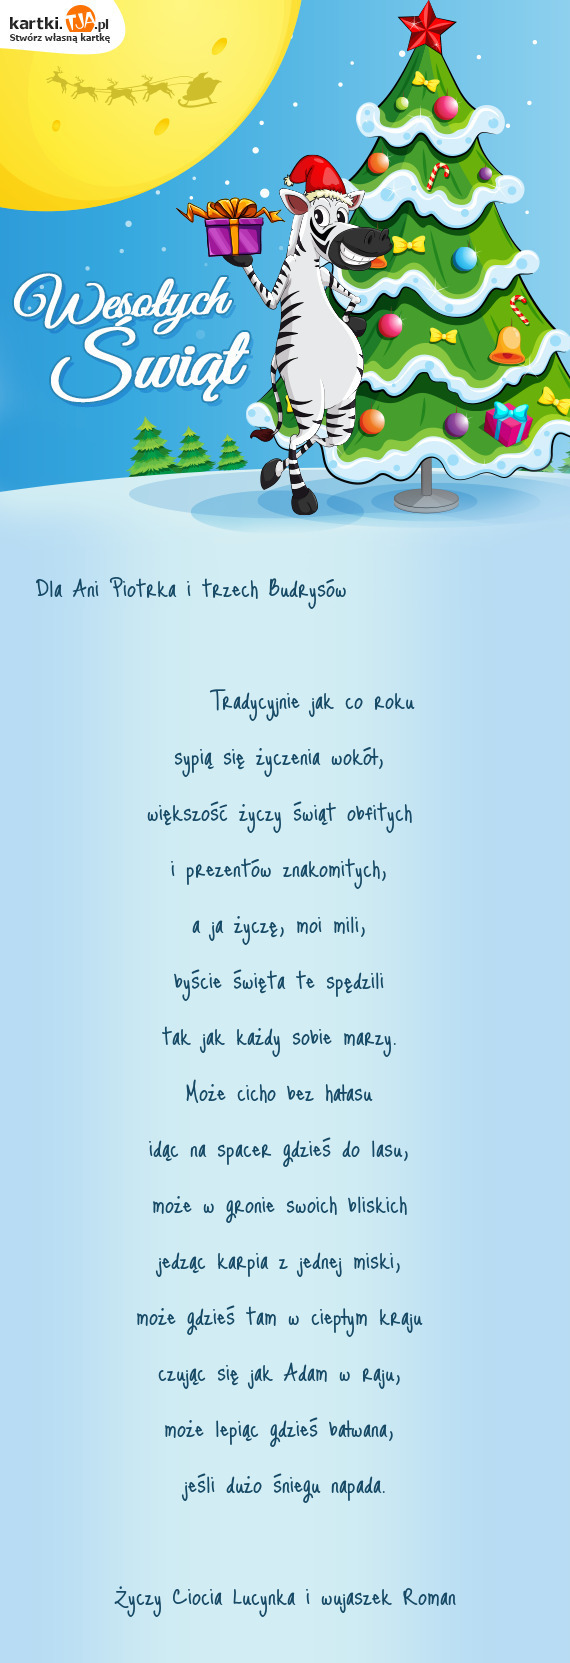 kartki.TJA.pl
Stwórz własną kartkę
Wesołych
Świąt
Dla Ani Piotrka i trzech Budrysów
Tradycyjnie jak co roku
sypią się życzenia wokół,
większość życzy świąt obfitych
i prezentów znakomitych,
a ja życzę, moi mili,
byście święta te spędzili
tak jak każdy sobie marzy.
Może cicho bez hałasu
idąc na spacer gdzieś do lasu,
może w gronie swoich bliskich
jedząc karpia z jednej miski,
może gdzieś tam w ciepłym kraju
czując się jak Adam w raju,
może lepiąc gdzieś bałwana,
jeśli dużo śniegu napada.
Życzy Ciocia Lucynka i wujaszek Roman